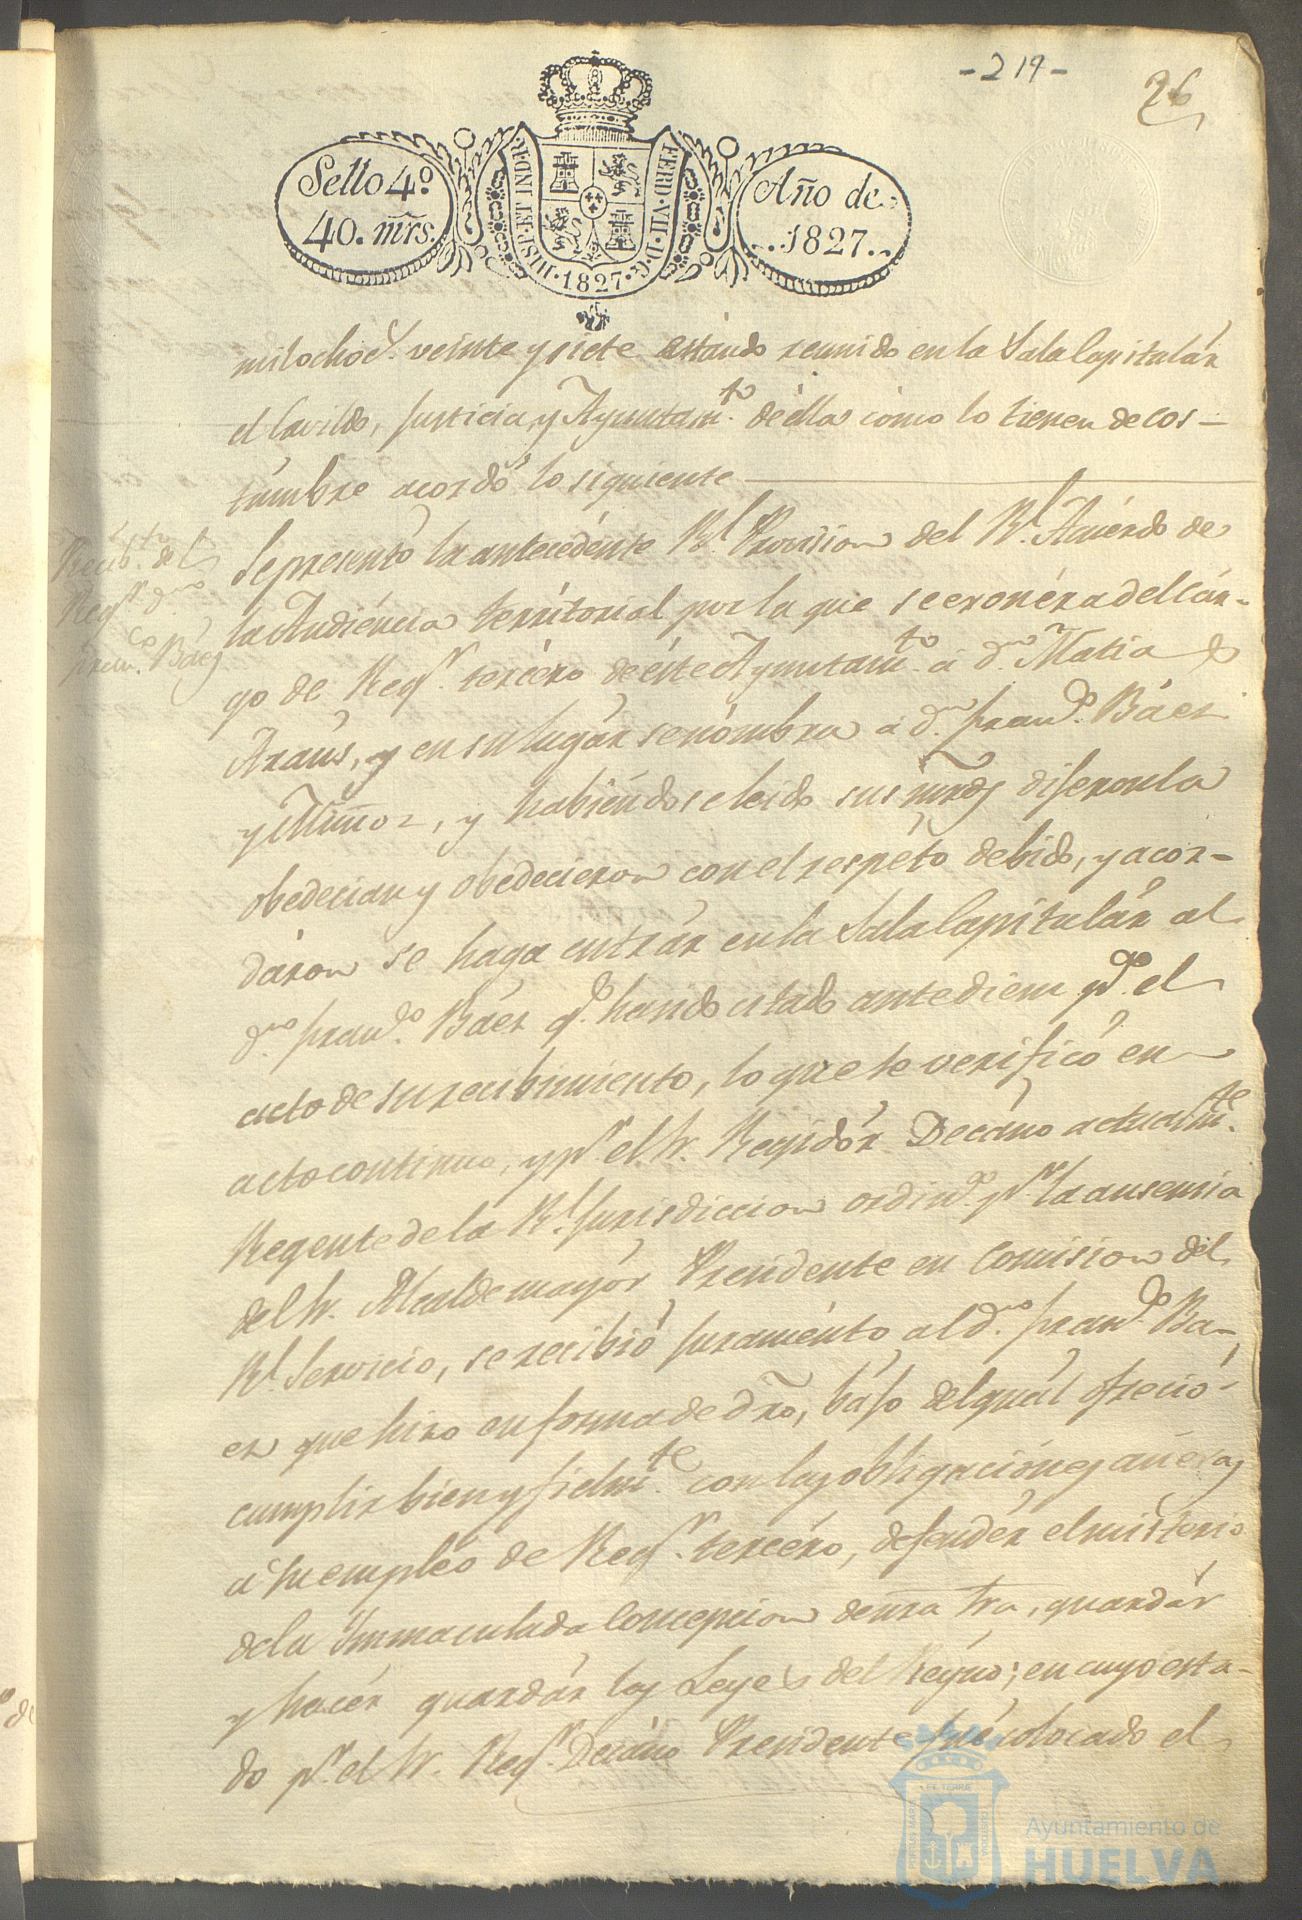 -219-
26
Sello 4º
40. mrs.
HISP. ET IND. R.
FERD. VII. D. G.
1827
Año de
1827.
mil ochoc.s veinte y siete estándo reunido en la Sala Capitulár
el Cavildo, Justicia, y Ayuntam.to de élla cómo lo tienen de cos-
túmbre acordó lo siguiente
Se presentó la antecedénte R.l Provision del R.l Acuérdo de
la Audiéncia térritorial por la que se exonéra del Cár-
go de Reg.r tercéro de éste Ayuntam.to á d.n Matias
Araus, y en su lugár se nómbra á d.n Fran.co Báez
y Muñoz, y habiéndose leido sus mrds dijeron la
obedecian y obedecieron con el respéto debido, y acor-
dáron se haga entrár en la Sala Capitulár al
d.n Fran.co Báez q.e hando citado antediem p.a el
acto de su recibimiento, lo que se verificó en
acto continuo, y p.r el Sr. Regidór Decáno actualm.te
Regente de la R.l Jurisdiccion ordin.a p.r la ausencia
del Sr. Alcalde mayór Presidente en Comision del
R.l Servicio, se recibió juraménto al d.n Fran.co Ba-
ez que hizo en forma de dro, bájo del quál ofreció
cumplir bien y fielm.te con las obligaciónes anéxas
á su empléo de Reg.r tercéro, defendér el misterio
de la Immaculada Concepcion de nra Sra, guardár
y hacér guardár las Leyes del Réyno; en cuyo esta-
do p.r el Sr. Reg.r Decáno Presidente fué colocado el
Recib.to del
Reg.r d.n
Fran.co Báez
Ayuntamiento de
HUELVA